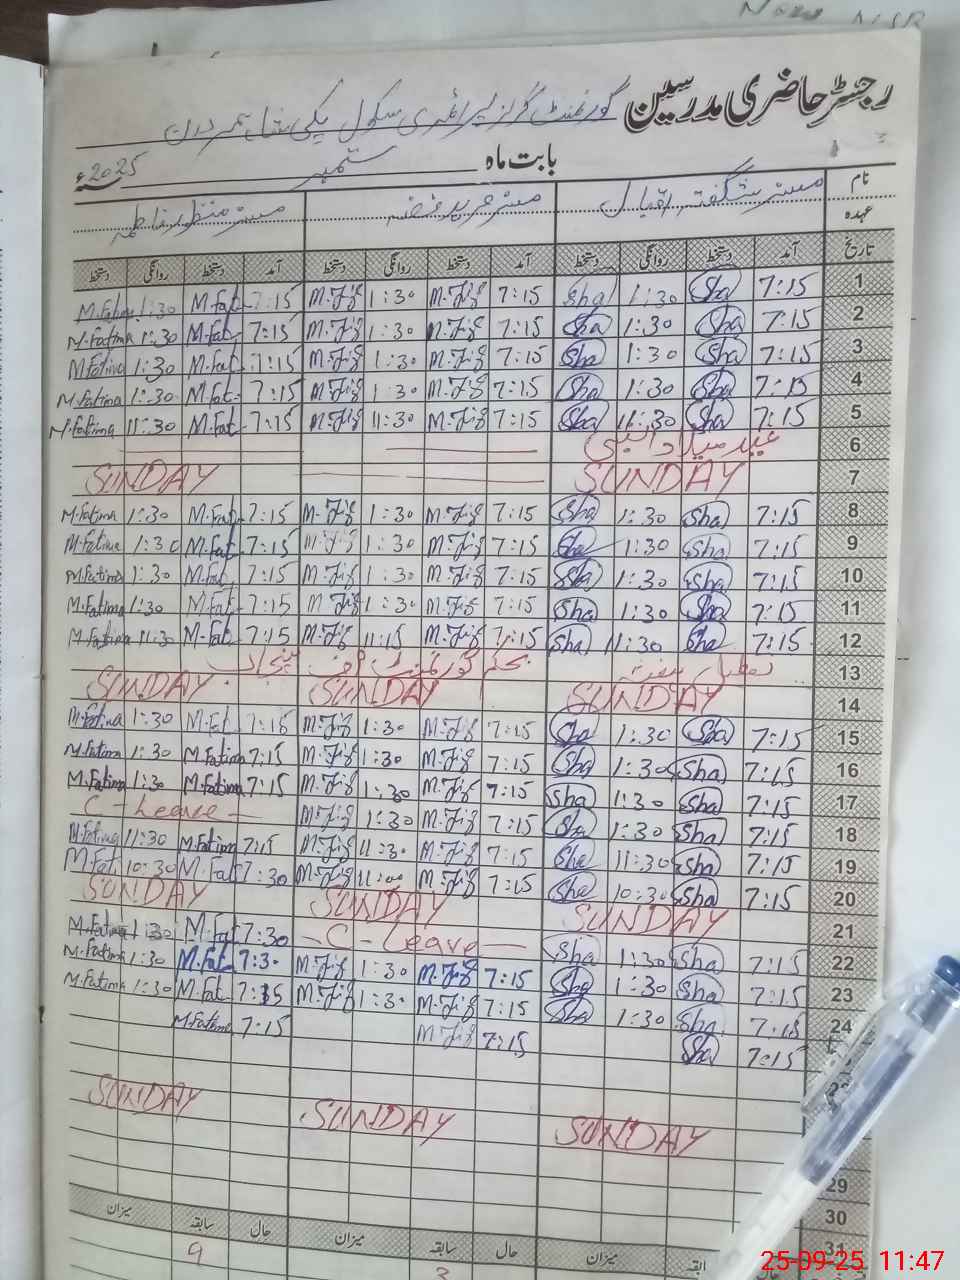 رجسٹر حاضری مدرسین
گورنمنٹ گرلز پرائمری سکول پکی شاہ
بابت ماہ ستمبر 2025ء
نام مسز شگفتہ مسز مسز منظور فاطمہ
عہدہ
تاریخ آمد دستخط روانگی دستخط آمد دستخط روانگی دستخط آمد دستخط روانگی دستخط
1 7:15 Sha 1:30 Sha 7:15 M.Fiz 1:30 M.Fiz 7:15 M.Fat 1:30 M.Fatima
2 7:15 Sha 1:30 Sha 7:15 M.Fiz 1:30 M.Fiz 7:15 M.Fat 1:30 M.Fatima
3 7:15 Sha 1:30 Sha 7:15 M.Fiz 1:30 M.Fiz 7:15 M.Fat 1:30 M.Fatima
4 7:15 Sha 1:30 Sha 7:15 M.Fiz 1:30 M.Fiz 7:15 M.Fat 1:30 M.Fatima
5 7:15 Sha 11:30 Sha 7:15 M.Fiz 11:30 M.Fiz 7:15 M.Fat 11:30 M.Fatima
6 عید میلاد النبی
7 SUNDAY SUNDAY
8 7:15 Sha 1:30 Sha 7:15 M.Fiz 1:30 M.Fiz 7:15 M.Fat 1:30 M.Fatima
9 7:15 Sha 1:30 Sha 7:15 M.Fiz 1:30 M.Fiz 7:15 M.Fat 1:30 M.Fatima
10 7:15 Sha 1:30 Sha 7:15 M.Fiz 1:30 M.Fiz 7:15 M.Fat 1:30 M.Fatima
11 7:15 Sha 1:30 Sha 7:15 M.Fiz 1:30 M.Fiz 7:15 M.Fat 1:30 M.Fatima
12 7:15 Sha 11:30 Sha 7:15 M.Fiz 11:15 M.Fiz 7:15 M.Fat 11:30 M.Fatima
13 تعطیل ہفتہ بحکم گورنمنٹ آف پنجاب
14 SUNDAY SUNDAY SUNDAY
15 7:15 Sha 1:30 Sha 7:15 M.Fiz 1:30 M.Fiz 7:15 M.Fat 1:30 M.Fatima
16 7:15 Sha 1:30 Sha 7:15 M.Fiz 1:30 M.Fiz 7:15 M.Fatima 1:30 M.Fatima
17 7:15 Sha 1:30 Sha 7:15 M.Fiz 1:30 M.Fiz 7:15 M.Fatima 1:30 M.Fatima
18 7:15 Sha 1:30 Sha 7:15 M.Fiz 1:30 M.Fiz C-Leave
19 7:15 Sha 11:30 Sha 7:15 M.Fiz 11:30 M.Fiz 7:15 M.Fatima 11:30 M.Fatima
20 7:15 Sha 10:30 Sha 7:15 M.Fiz 11:00 M.Fiz 7:30 M.Fat 10:30 M.Fat
21 SUNDAY SUNDAY SUNDAY
22 7:15 Sha 1:30 Sha C-Leave 7:30 M.Fat 1:30 M.Fatima
23 7:15 Sha 1:30 Sha 7:15 M.Fiz 1:30 M.Fiz 7:30 M.Fat 1:30 M.Fatima
24 7:15 Sha 1:30 Sha 7:15 M.Fiz 1:30 M.Fiz 7:15 M.Fat 1:30 M.Fatima
7:15 Sha 7:15 M.Fiz 7:15 M.Fatima
SUNDAY SUNDAY SUNDAY
29
30
31
میزان حال سابقہ میزان حال سابقہ میزان
3 9
25-09-25 11:47